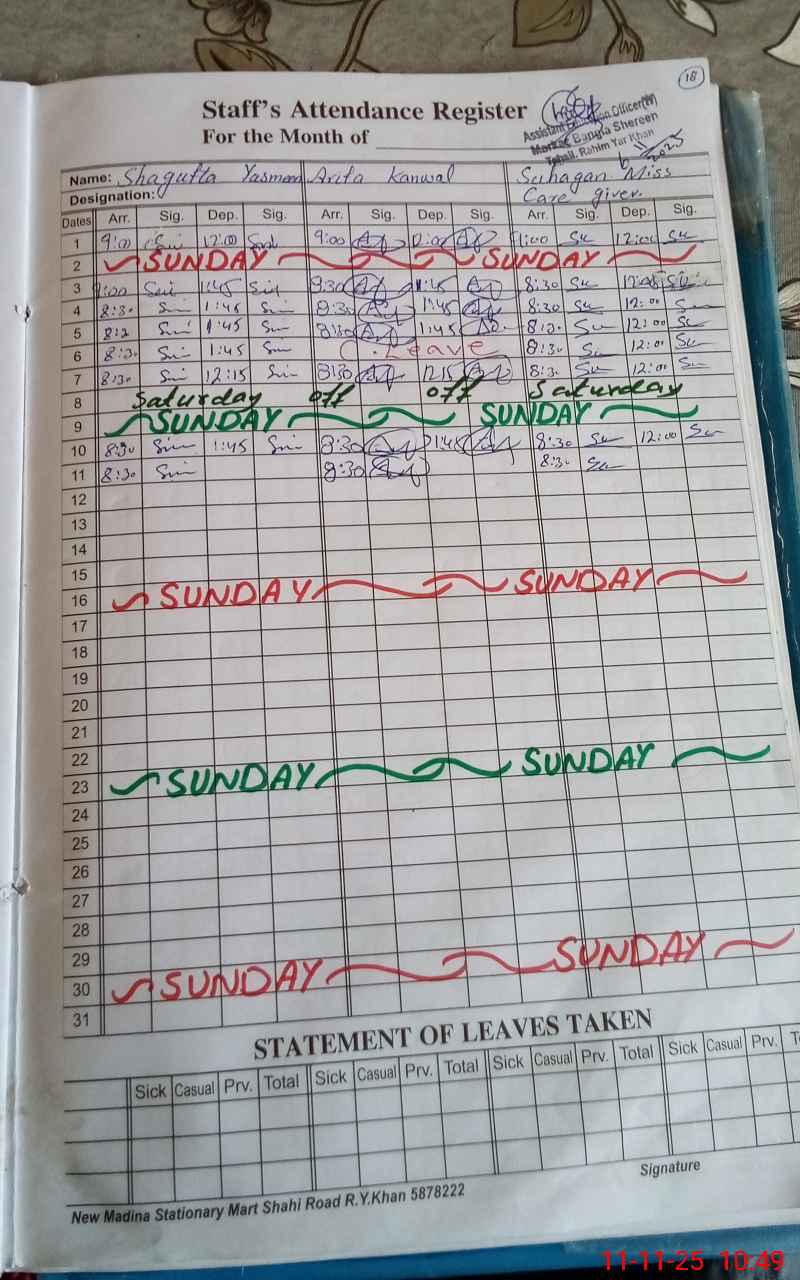 18
Staff's Attendance Register
For the Month of
Assistant Education Officer(W)
Markaz Bangla Shereen
Tehsil. Rahim Yar Khan
6/11/2025
Name: Shagufta Yasmeen Arifa Kanwal Suhagan Miss
Designation: Care giver.
Dates Arr. Sig. Dep. Sig. Arr. Sig. Dep. Sig. Arr. Sig. Dep. Sig.
1 9:00 12:00 9:00 12:00 9:00 Su 12:00 Su
2 SUNDAY SUNDAY
3 9:00 1:45 8:30 1:45 8:30 Su 12:00
4 8:30 1:45 8:30 1:45 8:30 Su 12:00 Su
5 8:30 1:45 8:30 1:45 8:30 Su 12:00 Su
6 8:30 1:45 C.Leave 8:30 Su 12:00 Su
7 8:30 12:15 8:30 12:15 8:30 Su 12:00 Su
8 Saturday off off Saturday
9 SUNDAY SUNDAY
10 8:30 1:45 8:30 1:45 8:30 Su 12:00 Su
11 8:30 8:30 8:30 Su
12
13
14
15
16 SUNDAY SUNDAY
17
18
19
20
21
22
23 SUNDAY SUNDAY
24
25
26
27
28
29
30 SUNDAY SUNDAY
31
STATEMENT OF LEAVES TAKEN
Sick Casual Prv. Total Sick Casual Prv. Total Sick Casual Prv. Total Sick Casual Prv. T
Signature
New Madina Stationary Mart Shahi Road R.Y.Khan 5878222
11-11-25 10:49